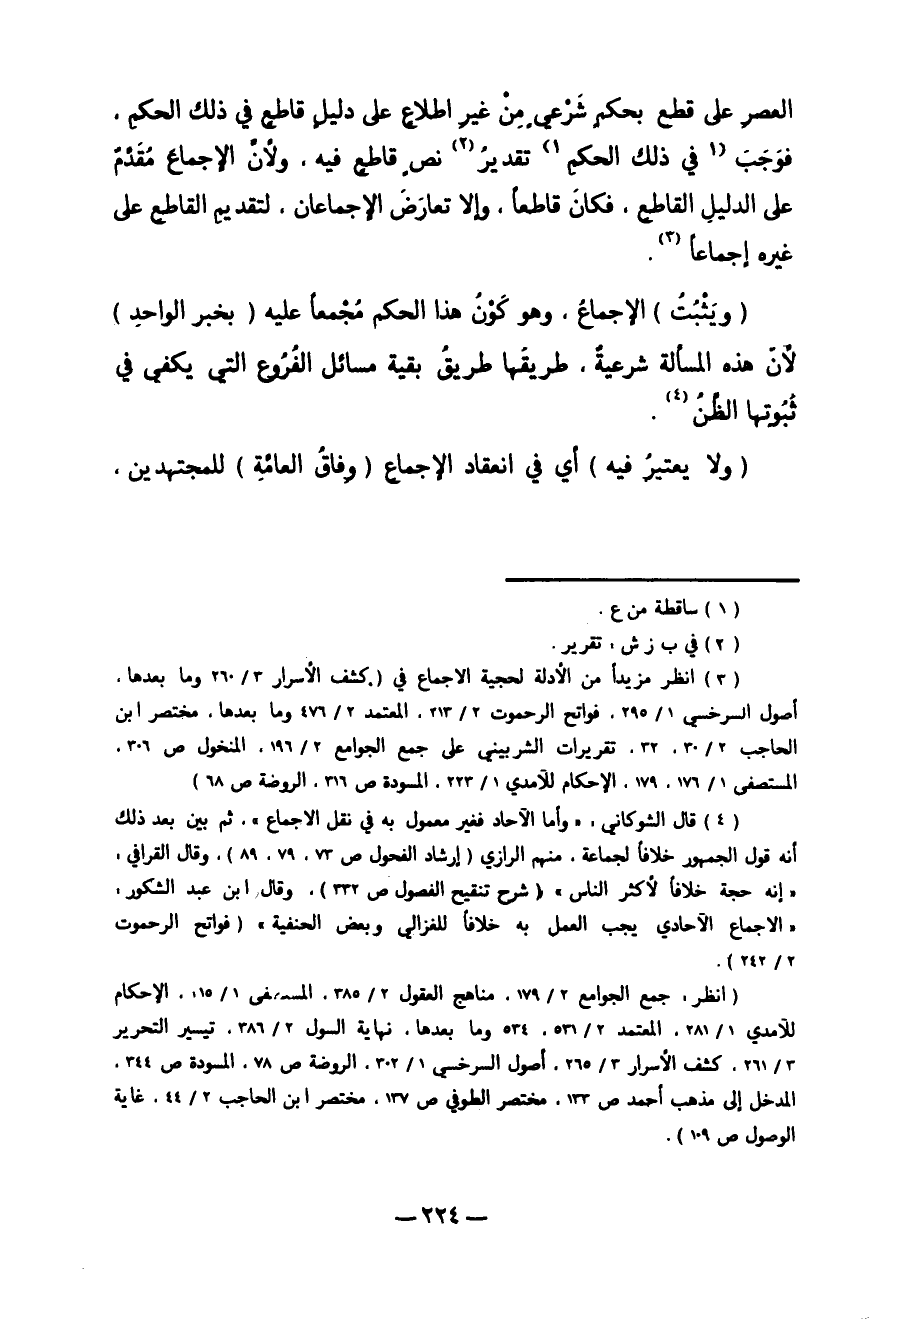 العصرِ على قطعٍ بحكمٍ شَرْعيٍ مِنْ غيرِ اطلاعٍ على دليلٍ قاطعٍ في ذلك الحكمِ ،
فوَجَبَ (١ في ذلك الحكمِ ١) تقديرُ (٢) نصٍ قاطعٍ فيه ، ولأنَّ الإجماعَ مُقَدَّمٌ
على الدليلِ القاطعِ ، فكانَ قاطعاً ، وإلا تعارَضَ الإجماعان ، لتقديمِ القاطعِ على
غيره إجماعاً (٣) .
( ويَثْبُتُ ) الإجماعُ ، وهو كَوْنُ هذا الحكمِ مُجْمعاً عليه ( بخبرِ الواحدِ )
لأنّ هذه المسألة شرعيةٌ ، طريقُها طريقُ بقية مسائل الفُرُوع التي يكفي في
ثُبُوتها الظَّنُ (٤) .
( ولا يعتبرُ فيه ) أي في انعقاد الإجماع ( وِفاقُ العامّةِ ) للمجتهدين ،
( ١ ) ساقطة من ع .
( ٢ ) في ب ز ش : تقرير .
( ٣ ) انظر مزيداً من الأدلة لحجية الاجماع في ( كشف الأسرار ٣ / ٢٦٠ وما بعدها ،
أصول السرخسي ١ / ٢٩٥ ، فواتح الرحموت ٢ / ٢١٣ ، المعتمد ٢ / ٤٧٦ وما بعدها ، مختصر ابن
الحاجب ٢ / ٣٠ ، ٣٢ ، تقريرات الشربيني على جمع الجوامع ٢ / ١٩٦ ، المنخول ص ٣٠٦ ،
المستصفى ١ / ١٧٦ ، ١٧٩ ، الإحكام للآمدي ١ / ٢٢٣ ، المسودة ص ٣١٦ ، الروضة ص ٦٨ )
( ٤ ) قال الشوكاني : « وأما الآحاد فغير معمول به في نقل الاجماع » ، ثم بين بعد ذلك
أنه قول الجمهور خلافاً لجماعة ، منهم الرازي ( إرشاد الفحول ص ٧٣ ، ٧٩ ، ٨٩ ) ، وقال القرافي :
« إنه حجة خلافاً لأكثر الناس » ( شرح تنقيح الفصول ص ٣٣٢ ) ، وقال ابن عبد الشكور :
« الاجماع الآحادي يجب العمل به خلافاً للغزالي وبعض الحنفية » ( فواتح الرحموت
٢ / ٢٤٢ ) .
( انظر : جمع الجوامع ٢ / ١٧٩ ، مناهج العقول ٢ / ٣٨٥ ، المستصفى ١ / ، الإحكام
للآمدي ١ / ٢٨١ ، المعتمد ٢ / ٥٣١ ، ٥٣٤ وما بعدها ، نهاية السول ٢ / ٣٨٦ ، تيسير التحرير
٣ / ٢٦١ ، كشف الأسرار ٣ / ٢٦٥ ، أصول السرخسي ١ / ٣٠٢ ، الروضة ص ٧٨ ، المسودة ص ٣٤٤ ،
المدخل إلى مذهب أحمد ص ١٣٣ ، مختصر الطوفي ص ١٣٧ ، مختصر ابن الحاجب ٢ / ٤٤ ، غاية
الوصول ص ١٠٩ ) .
— ٢٢٤ —